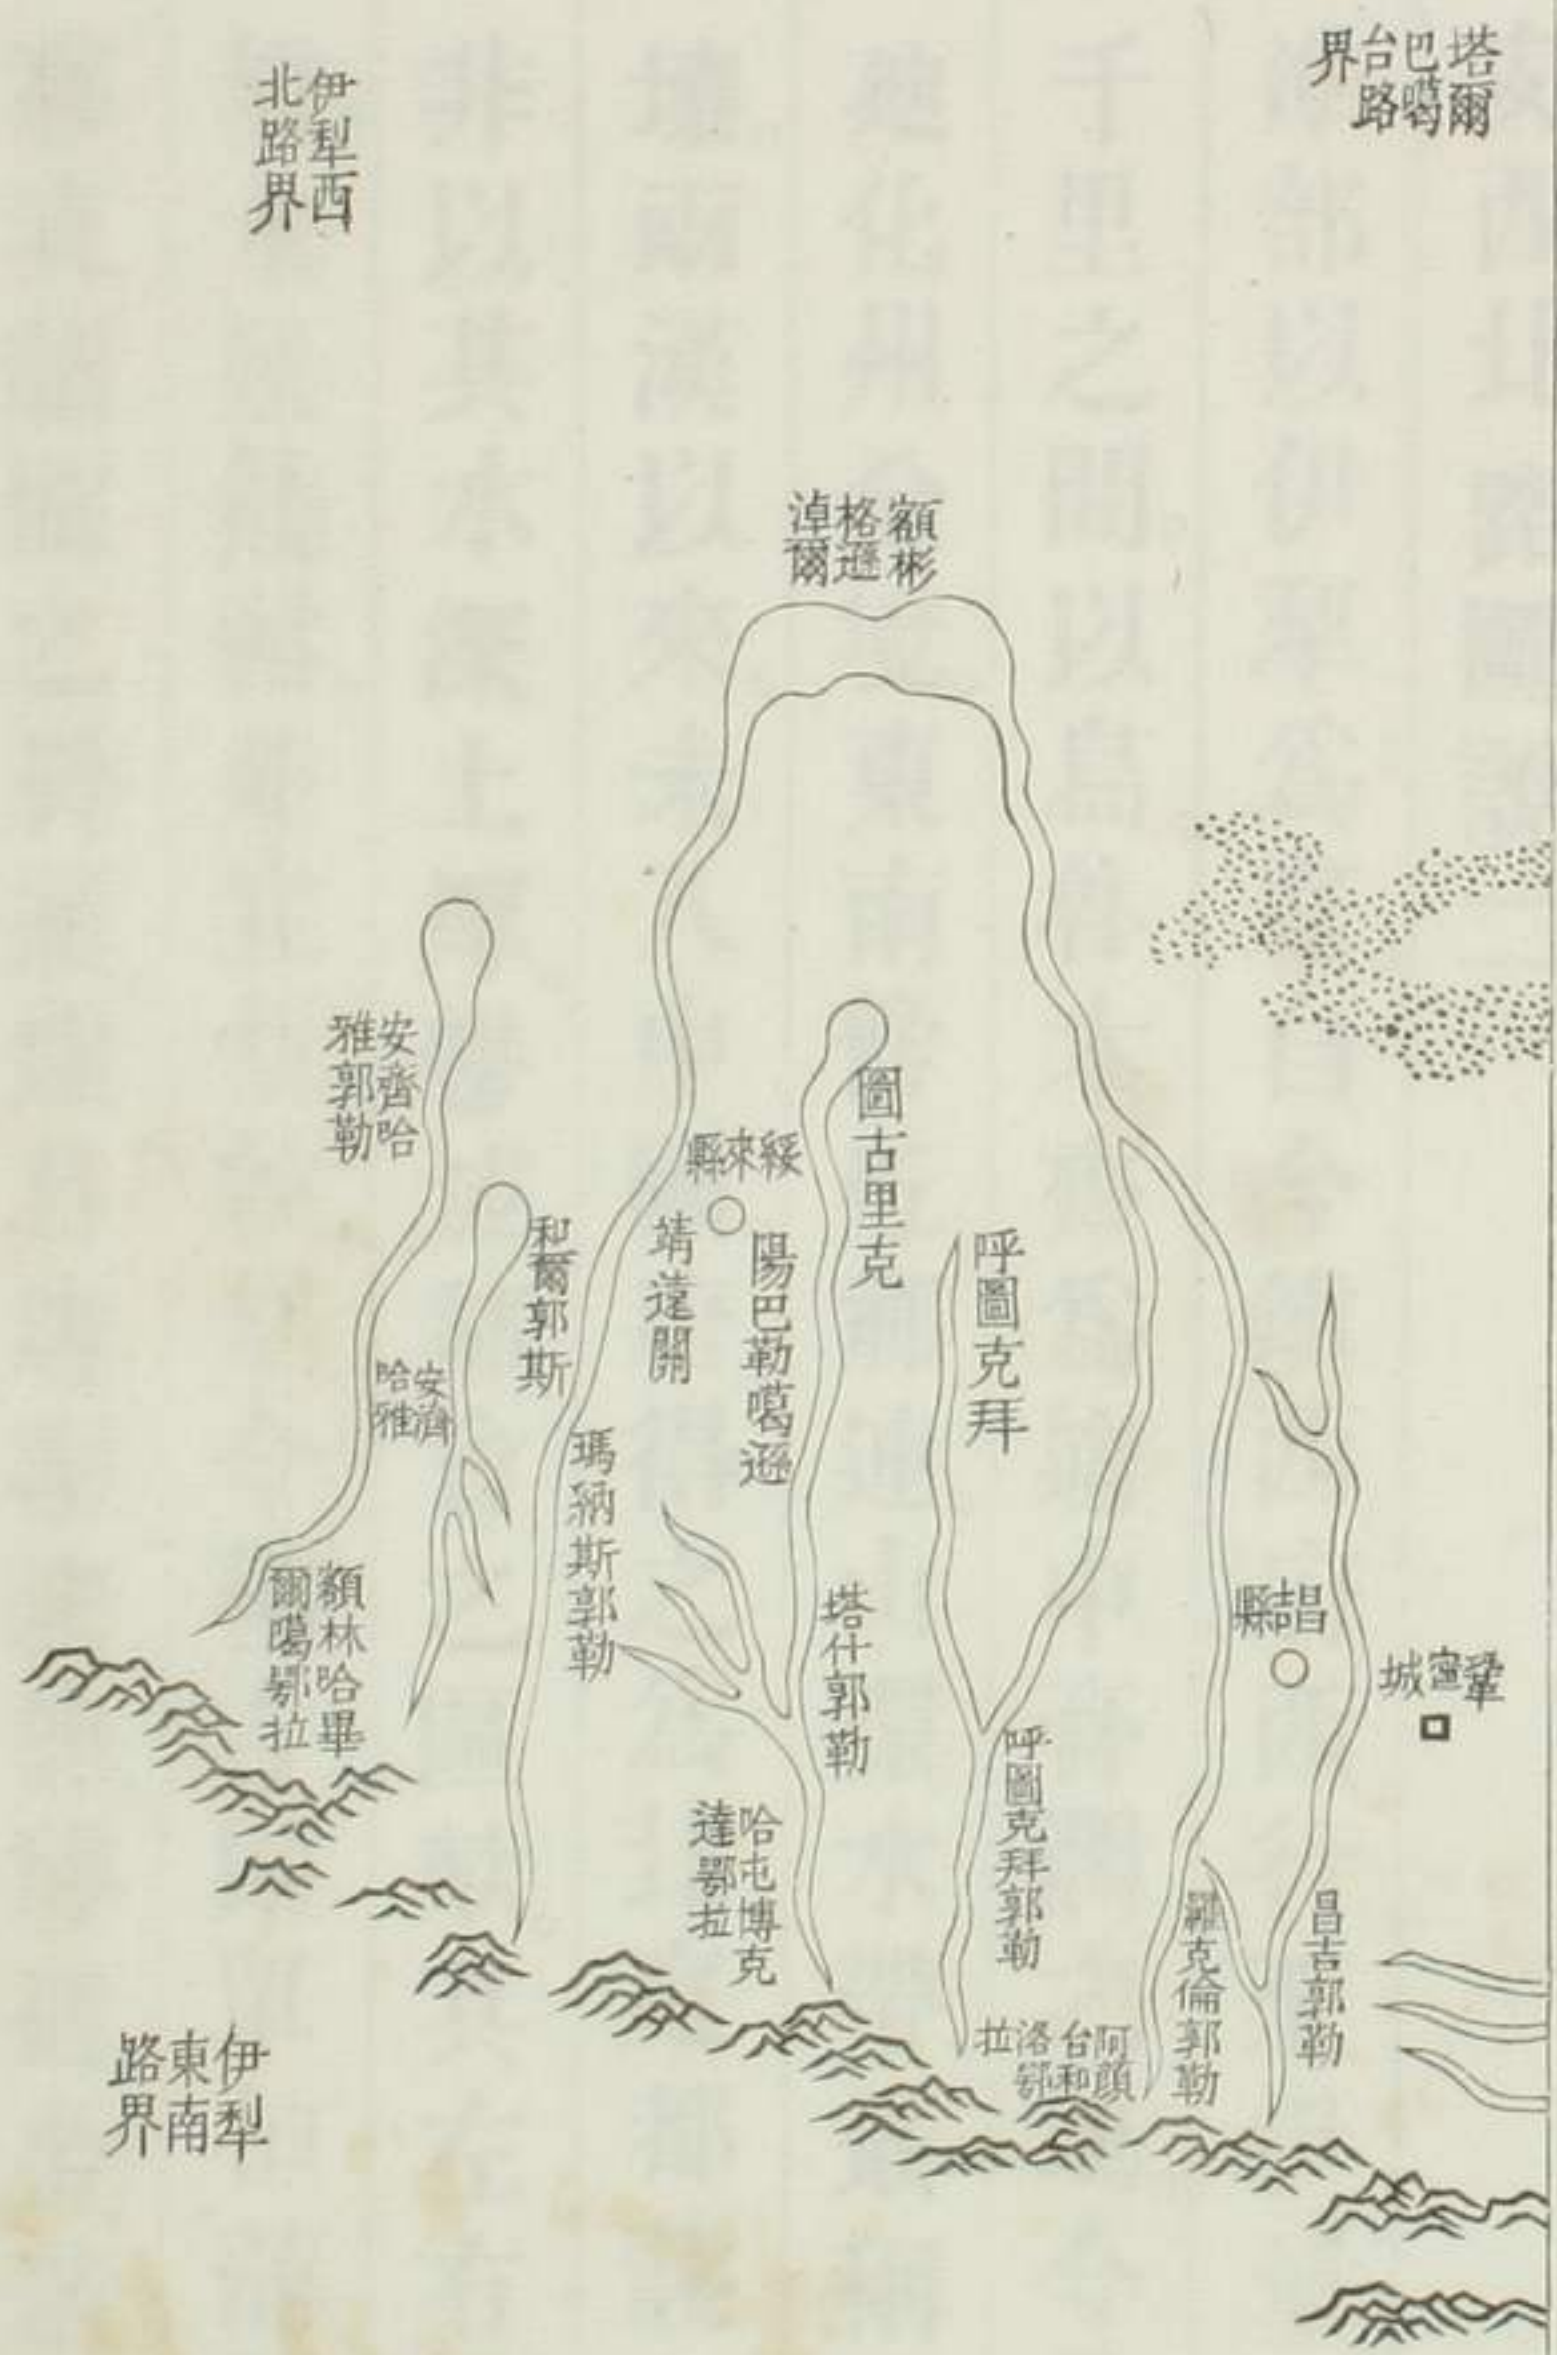 塔爾巴噶台路界
伊犁西北路界
額彬格遜淖爾
安齊哈雅郭勒
圖古里克
綏來縣
靖遠關
陽巴勒噶遜
和爾郭斯
呼圖克拜
安濟哈雅
瑪納斯郭勒
額林哈畢爾噶鄂拉
塔什郭勒
昌吉縣
鞏寧城
呼圖克拜郭勒
哈屯博克達鄂拉
羅克倫郭勒
昌吉郭勒
阿顏台和洛鄂拉
伊犁東南路界